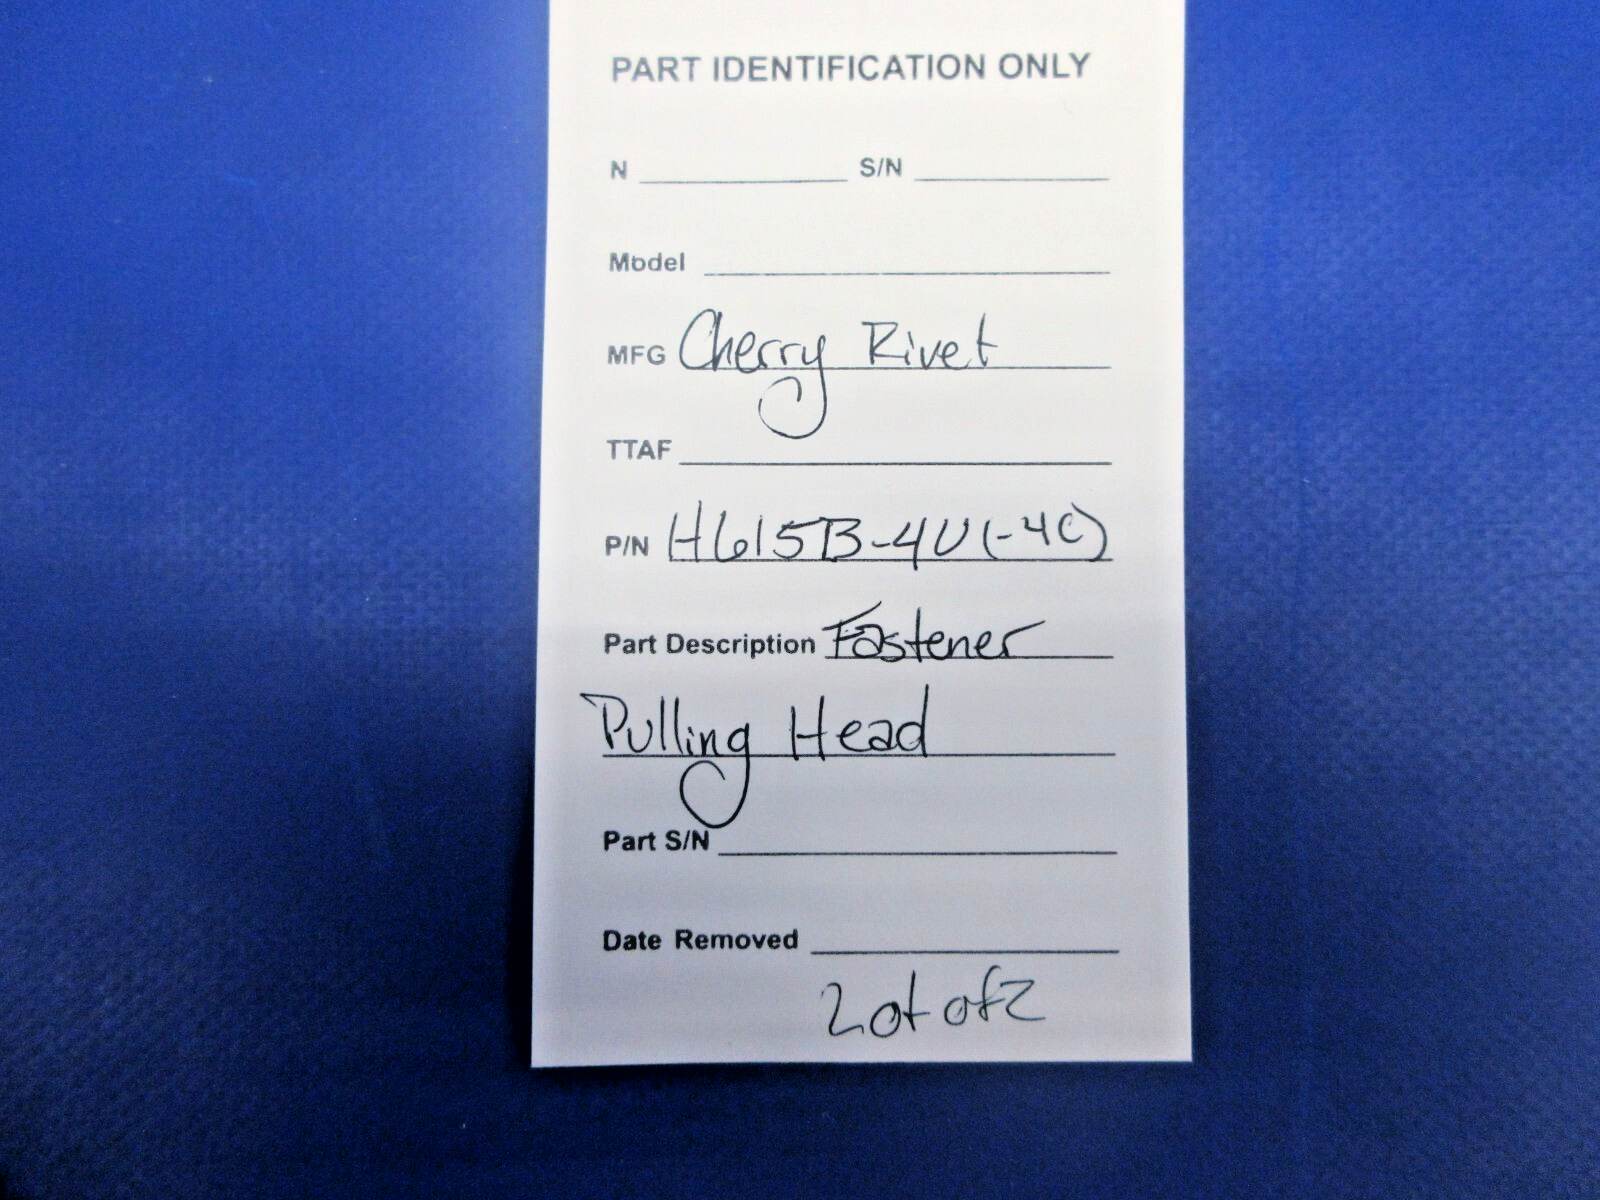 PART IDENTIFICATION ONLY
N S/N
Model
MFG Cherry Rivet
TTAF
P/N H615B-4U(-4C)
Part Description Fastener
Pulling Head
Part S/N
Date Removed
Lot of 2